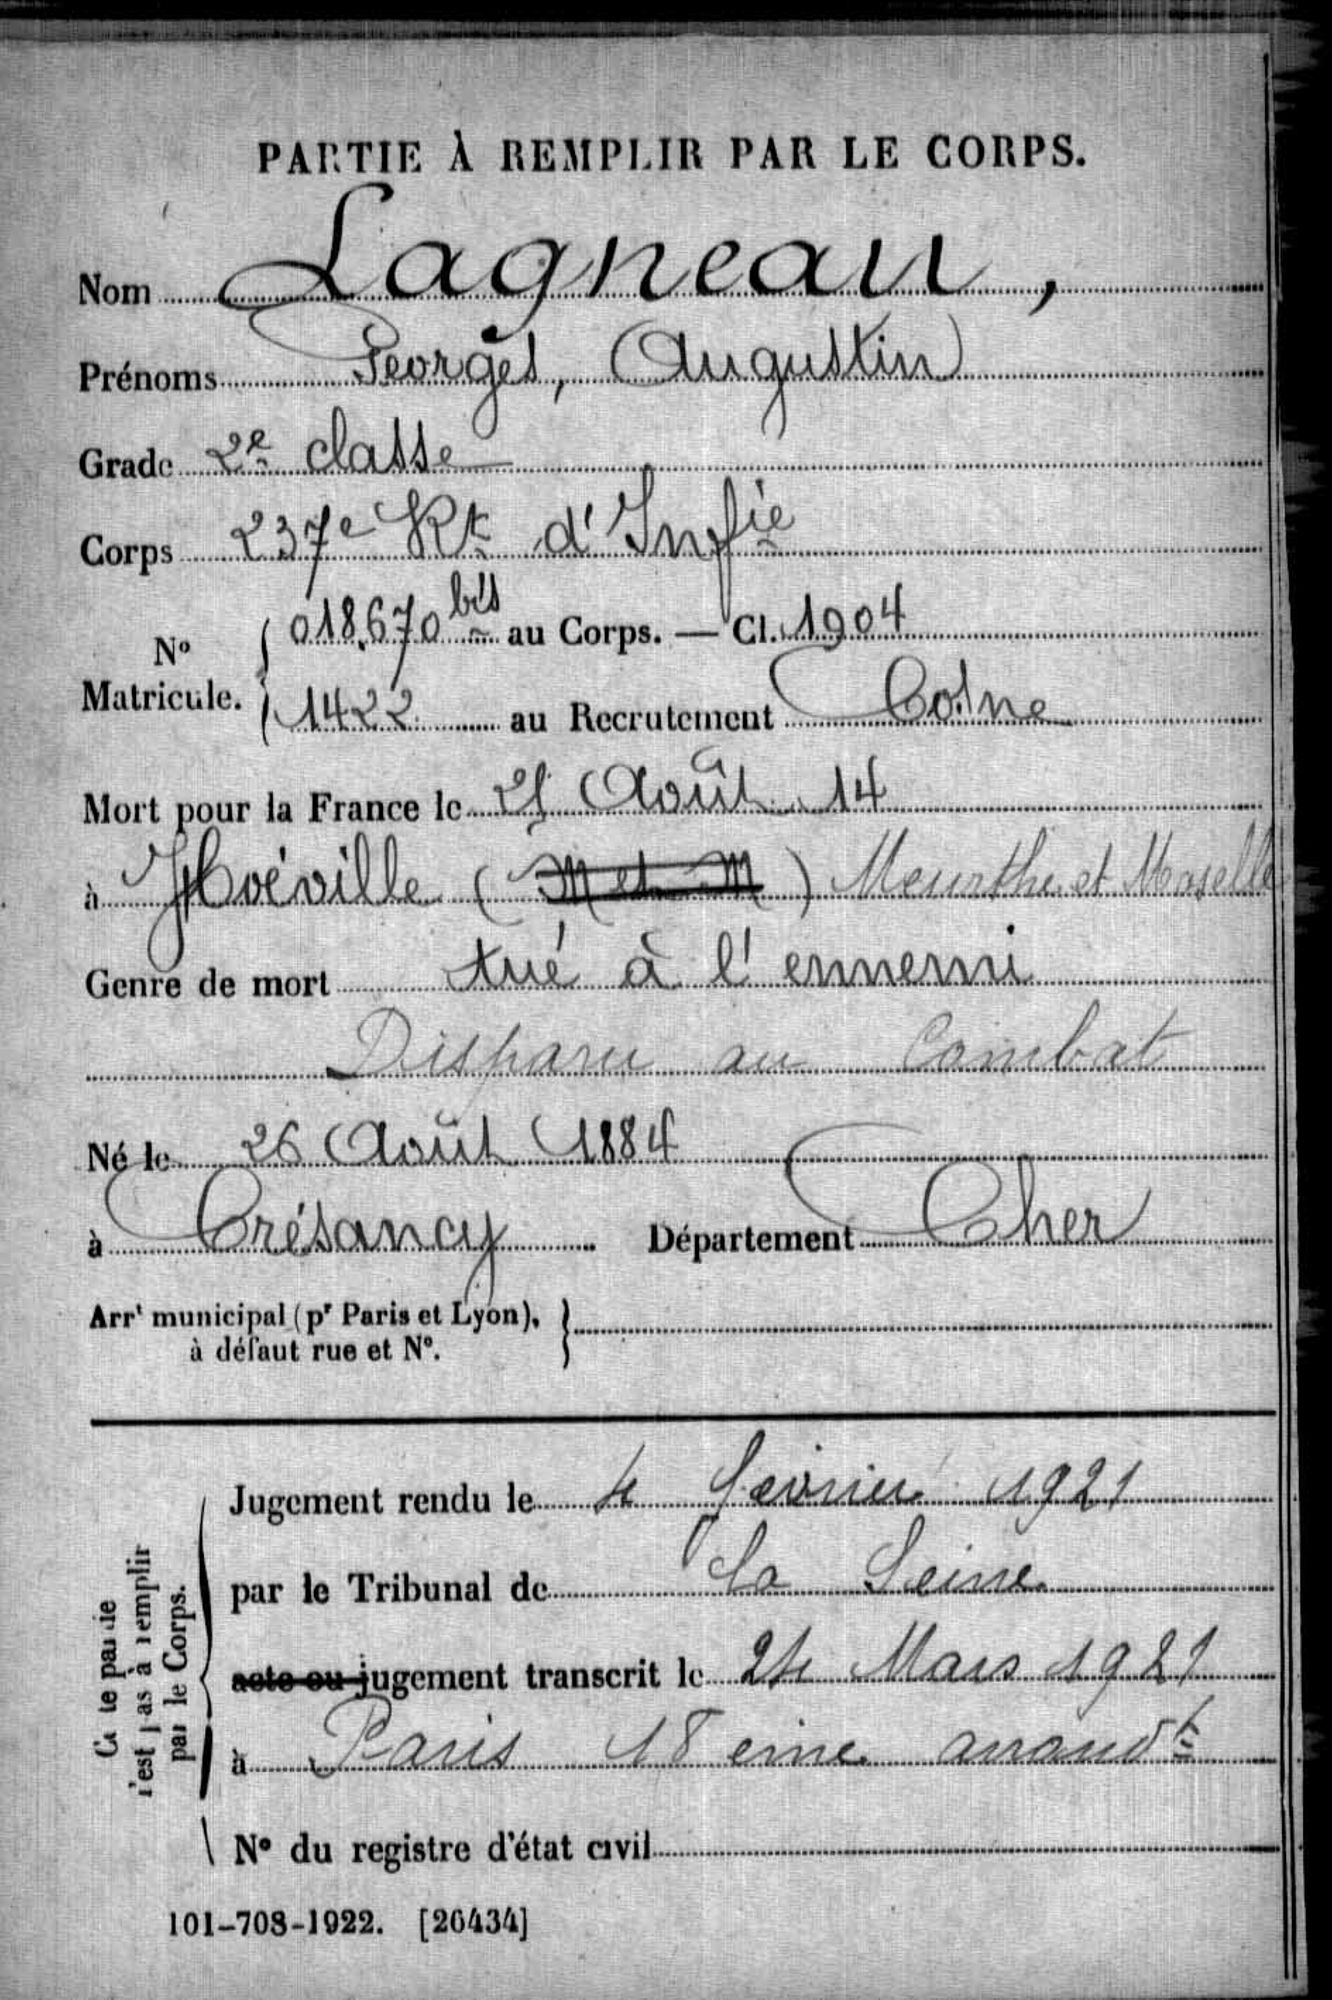 PARTIE À REMPLIR PAR LE CORPS.
Nom Lagneau,
Prénoms Georges, Augustin
Grade 2e classe
Corps 237e Rt d'Infie
No Matricule. 018.670 bis au Corps. — Cl. 1904
1422 au Recrutement Cosne
Mort pour la France le août 14
à Hoéville (M et M) Meurthe et Moselle
Genre de mort tué à l'ennemi
Disparu au Combat
Né le 26 Août 1884
à Crésancy Département Cher
Arrt municipal (pr Paris et Lyon),
à défaut rue et No.
Cette partie n'est pas à remplir par le Corps.
Jugement rendu le 4 février 1921
par le Tribunal de la Seine
acte ou jugement transcrit le 24 Mars 1921
à Paris 18eme arrondt
No du registre d'état civil
101-708-1922. [26434]